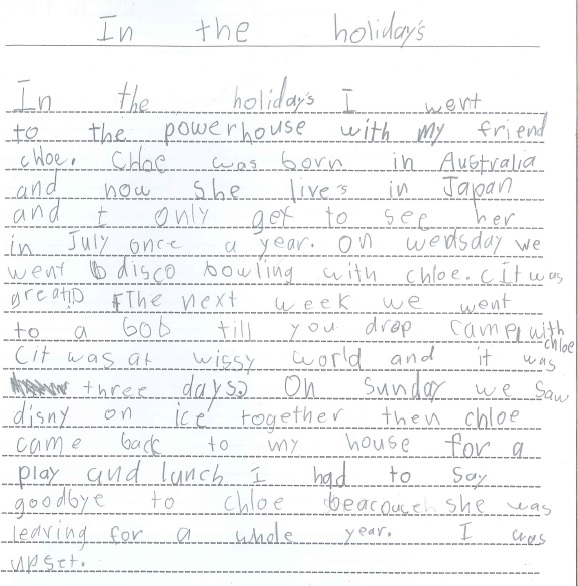 In the holiday's
In the holiday's I went
to the powerhouse with my friend
chloe. Chloe was born in Australia
and now she live's in Japan
and I only get to see her
in July once a year. On wedsday we
went to disco bowling with chloe. (It was
great!) The next week we went
to a bob till you drop came, with
chloe
(it was at wissy world and it was
three days) On Sunday we saw
disny on ice together then chloe
came back to my house for a
play and lunch I had to say
goodbye to chloe she was
leaving for a whole year. I was
upset.